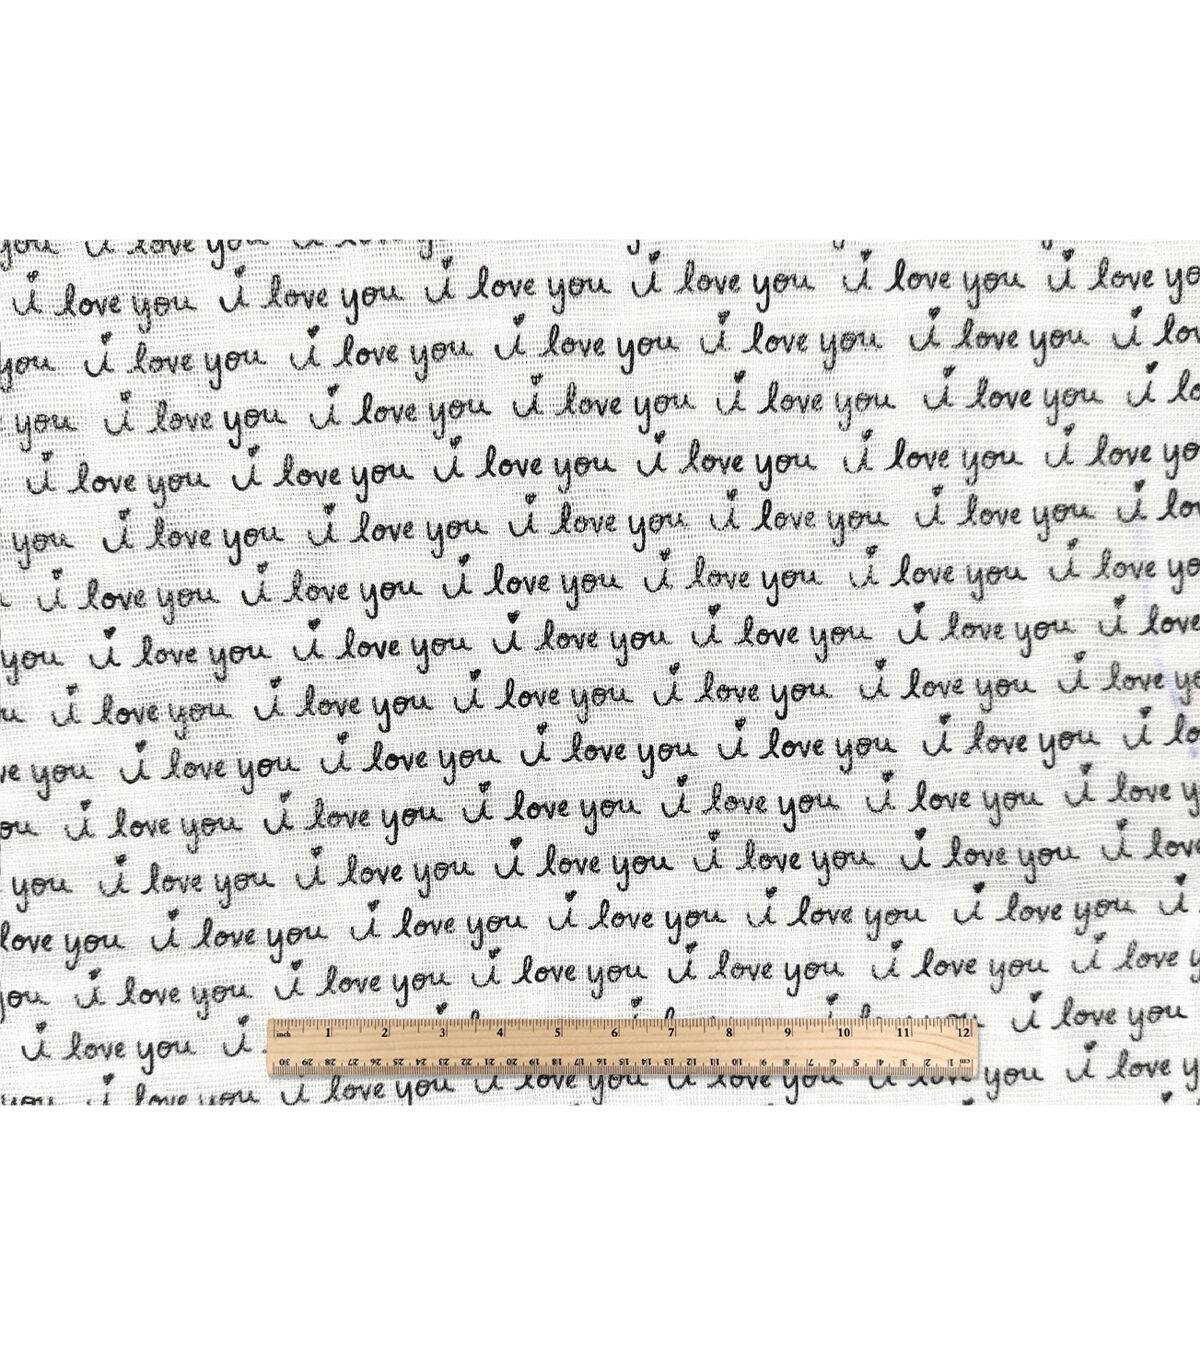 you i love you i love y
i love you i love you i love you i love you i love you i love yo
you i love you i love you i love you i love you i love you i lo
you i love you i love you i love you i love you i love you i lo
i love you i love you i love you i love you i love you i love yo
you i love you i love you i love you i love you i love you i lov
i love you i love you i love you i love you i love you i love yo
you i love you i love you i love you i love you i love you i love
u i love you i love you i love you i love you i love you i love yo
ve you i love you i love you i love you i love you i love you i lo
ou i love you i love you i love you i love you i love you i love y
you i love you i love you i love you i love you i love you i love
love you i love you i love you i love you i love you i love you i
you i love you i love you i love you i love you i love you i love y
i love you i i love you
inch 1 2 3 4 5 6 7 8 9 10 11 12
30 29 28 27 26 25 24 23 22 21 20 19 18 17 16 15 14 13 12 11 10 9 8 7 6 5 4 3 2 1 cm
you i love you i love you i love you i love you i love you i love y